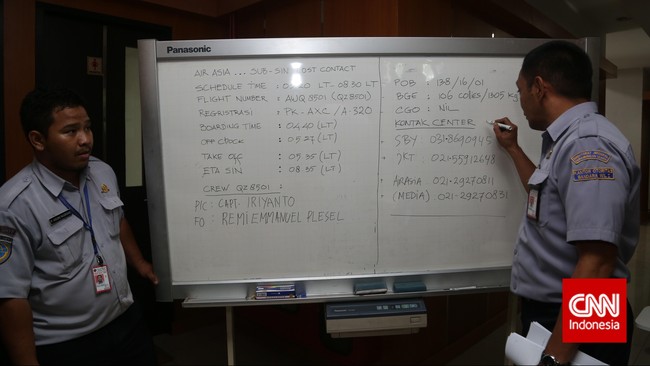 Panasonic
AIR ASIA ... SUB-SIN LOST CONTACT
SCHEDULE TIME : LT - 0830 LT
FLIGHT NUMBER : AWQ 8501 (QZ8501)
REGRISTRASI : PK-AXC / A-320
BOARDING TIME : 04.40 (LT)
OFF CDOCK : 05.27 (LT)
TAKE OFF : 05.35 (LT)
ETA SIN : 08.35 (LT)
CREW QZ8501 :
PIC : CAPT. IRIYANTO
FO : REMI EMMANUEL PLESEL
POB : 138/16/01
BGE : 106 COLIES/1305 KG
CGO : NIL
KONTAK CENTER
SBY : 031-8690945
JKT : 021-55912648
AIRASIA : 021-29270811
(MEDIA) : 021-29270831
CNN
Indonesia